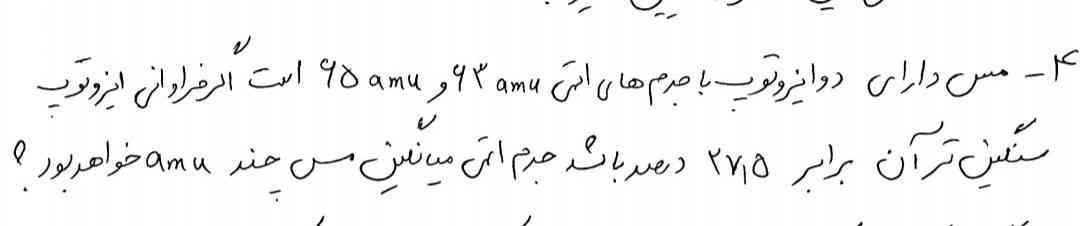 ۴- مس دارای دو ایزوتوپ با جرم های اتمی ۶۳ amu و ۶۵ amu است اگر فراوانی ایزوتوپ
سنگین تر آن برابر ۲۷,۵ درصد باشد جرم اتمی میانگین مس چند amu خواهد بود ؟